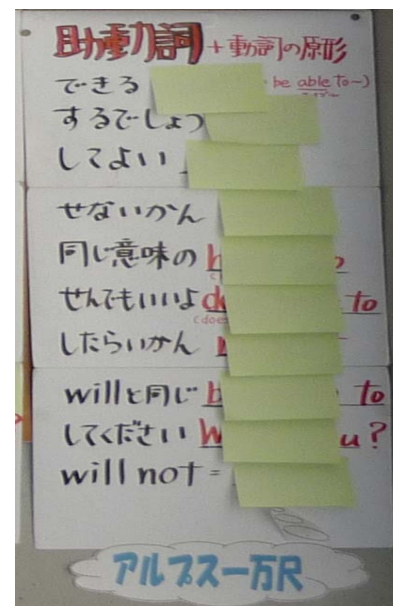 助動詞 + 動詞の原形
できる be able to~)
するでしょう
してよい
せないかん
同じ意味の h
せんでもいいよ do to
(does
したらいかん
willと同じ b to
してください W u?
will not =
アルプス一万尺